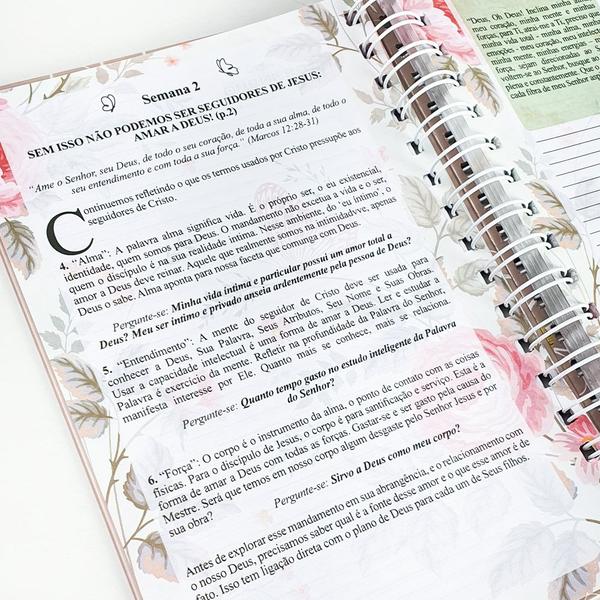 Semana 2
SEM ISSO NÃO PODEMOS SER SEGUIDORES DE JESUS:
AMAR A DEUS! (p.2)
"Ame o Senhor, seu Deus, de todo o seu coração, de toda a sua alma, de todo o
seu entendimento e com toda a sua força." (Marcos 12:28-31)
Continuemos refletindo o que os termos usados por Cristo pressupõe aos
seguidores de Cristo.
4. "Alma": A palavra alma significa vida. É o próprio ser, o eu existencial,
identidade, quem somos para Deus. O mandamento não excetua a vida e o ser,
quem o discípulo é na sua realidade interna. Nesse ambiente, do 'eu íntimo', o
amor a Deus deve reinar. Aquele que realmente somos na intimidadvve, apenas
Deus o sabe. Alma aponta para nossa faceta que comunga com Deus.
Pergunte-se: Minha vida íntima e particular possui um amor total a
Deus? Meu ser íntimo e privado anseia ardentemente pela pessoa de Deus?
5. "Entendimento": A mente do seguidor de Cristo deve ser usada para
conhecer a Deus, Sua Palavra, Seus Atributos, Seu Nome e Suas Obras.
Usar a capacidade intelectual é uma forma de amar a Deus. Ler e estudar a
Palavra é exercício da mente. Refletir na profundidade da Palavra do Senhor,
manifesta interesse por Ele. Quanto mais se conhece, mais se relaciona.
Pergunte-se: Quanto tempo gasto no estudo inteligente da Palavra
do Senhor?
6. "Força": O corpo é o instrumento da alma, o ponto de contato com as coisas
físicas. Para o discípulo de Jesus, o corpo é para santificação e serviço. Esta é a
forma de amar a Deus com todas as forças. Gastar-se e ser gasto pela causa do
Mestre. Será que temos em nosso corpo algum desgaste pelo Senhor Jesus e por
sua obra?
Pergunte-se: Sirvo a Deus como meu corpo?
Antes de explorar esse mandamento em sua abrangência, e o relacionamento com
o nosso Deus, precisamos saber qual é a fonte desse amor e o que esse amor é de
fato. Isso tem ligação direta com o plano de Deus para cada um de Seus filhos.
"Deus, Oh Deus! Inclina minha
meu coração, minha mente e minhas
forças, para Ti, atrai-me a Ti, preciso que
minha vida total - minha alma, minhas
emoções - meu coração, meu intelecto
minha mente, minhas energias -
força, sejam direcionadas ao
voltem-se ao Senhor, busque ao
plena e constantemente. Que o
cada fibra de meu Senhor